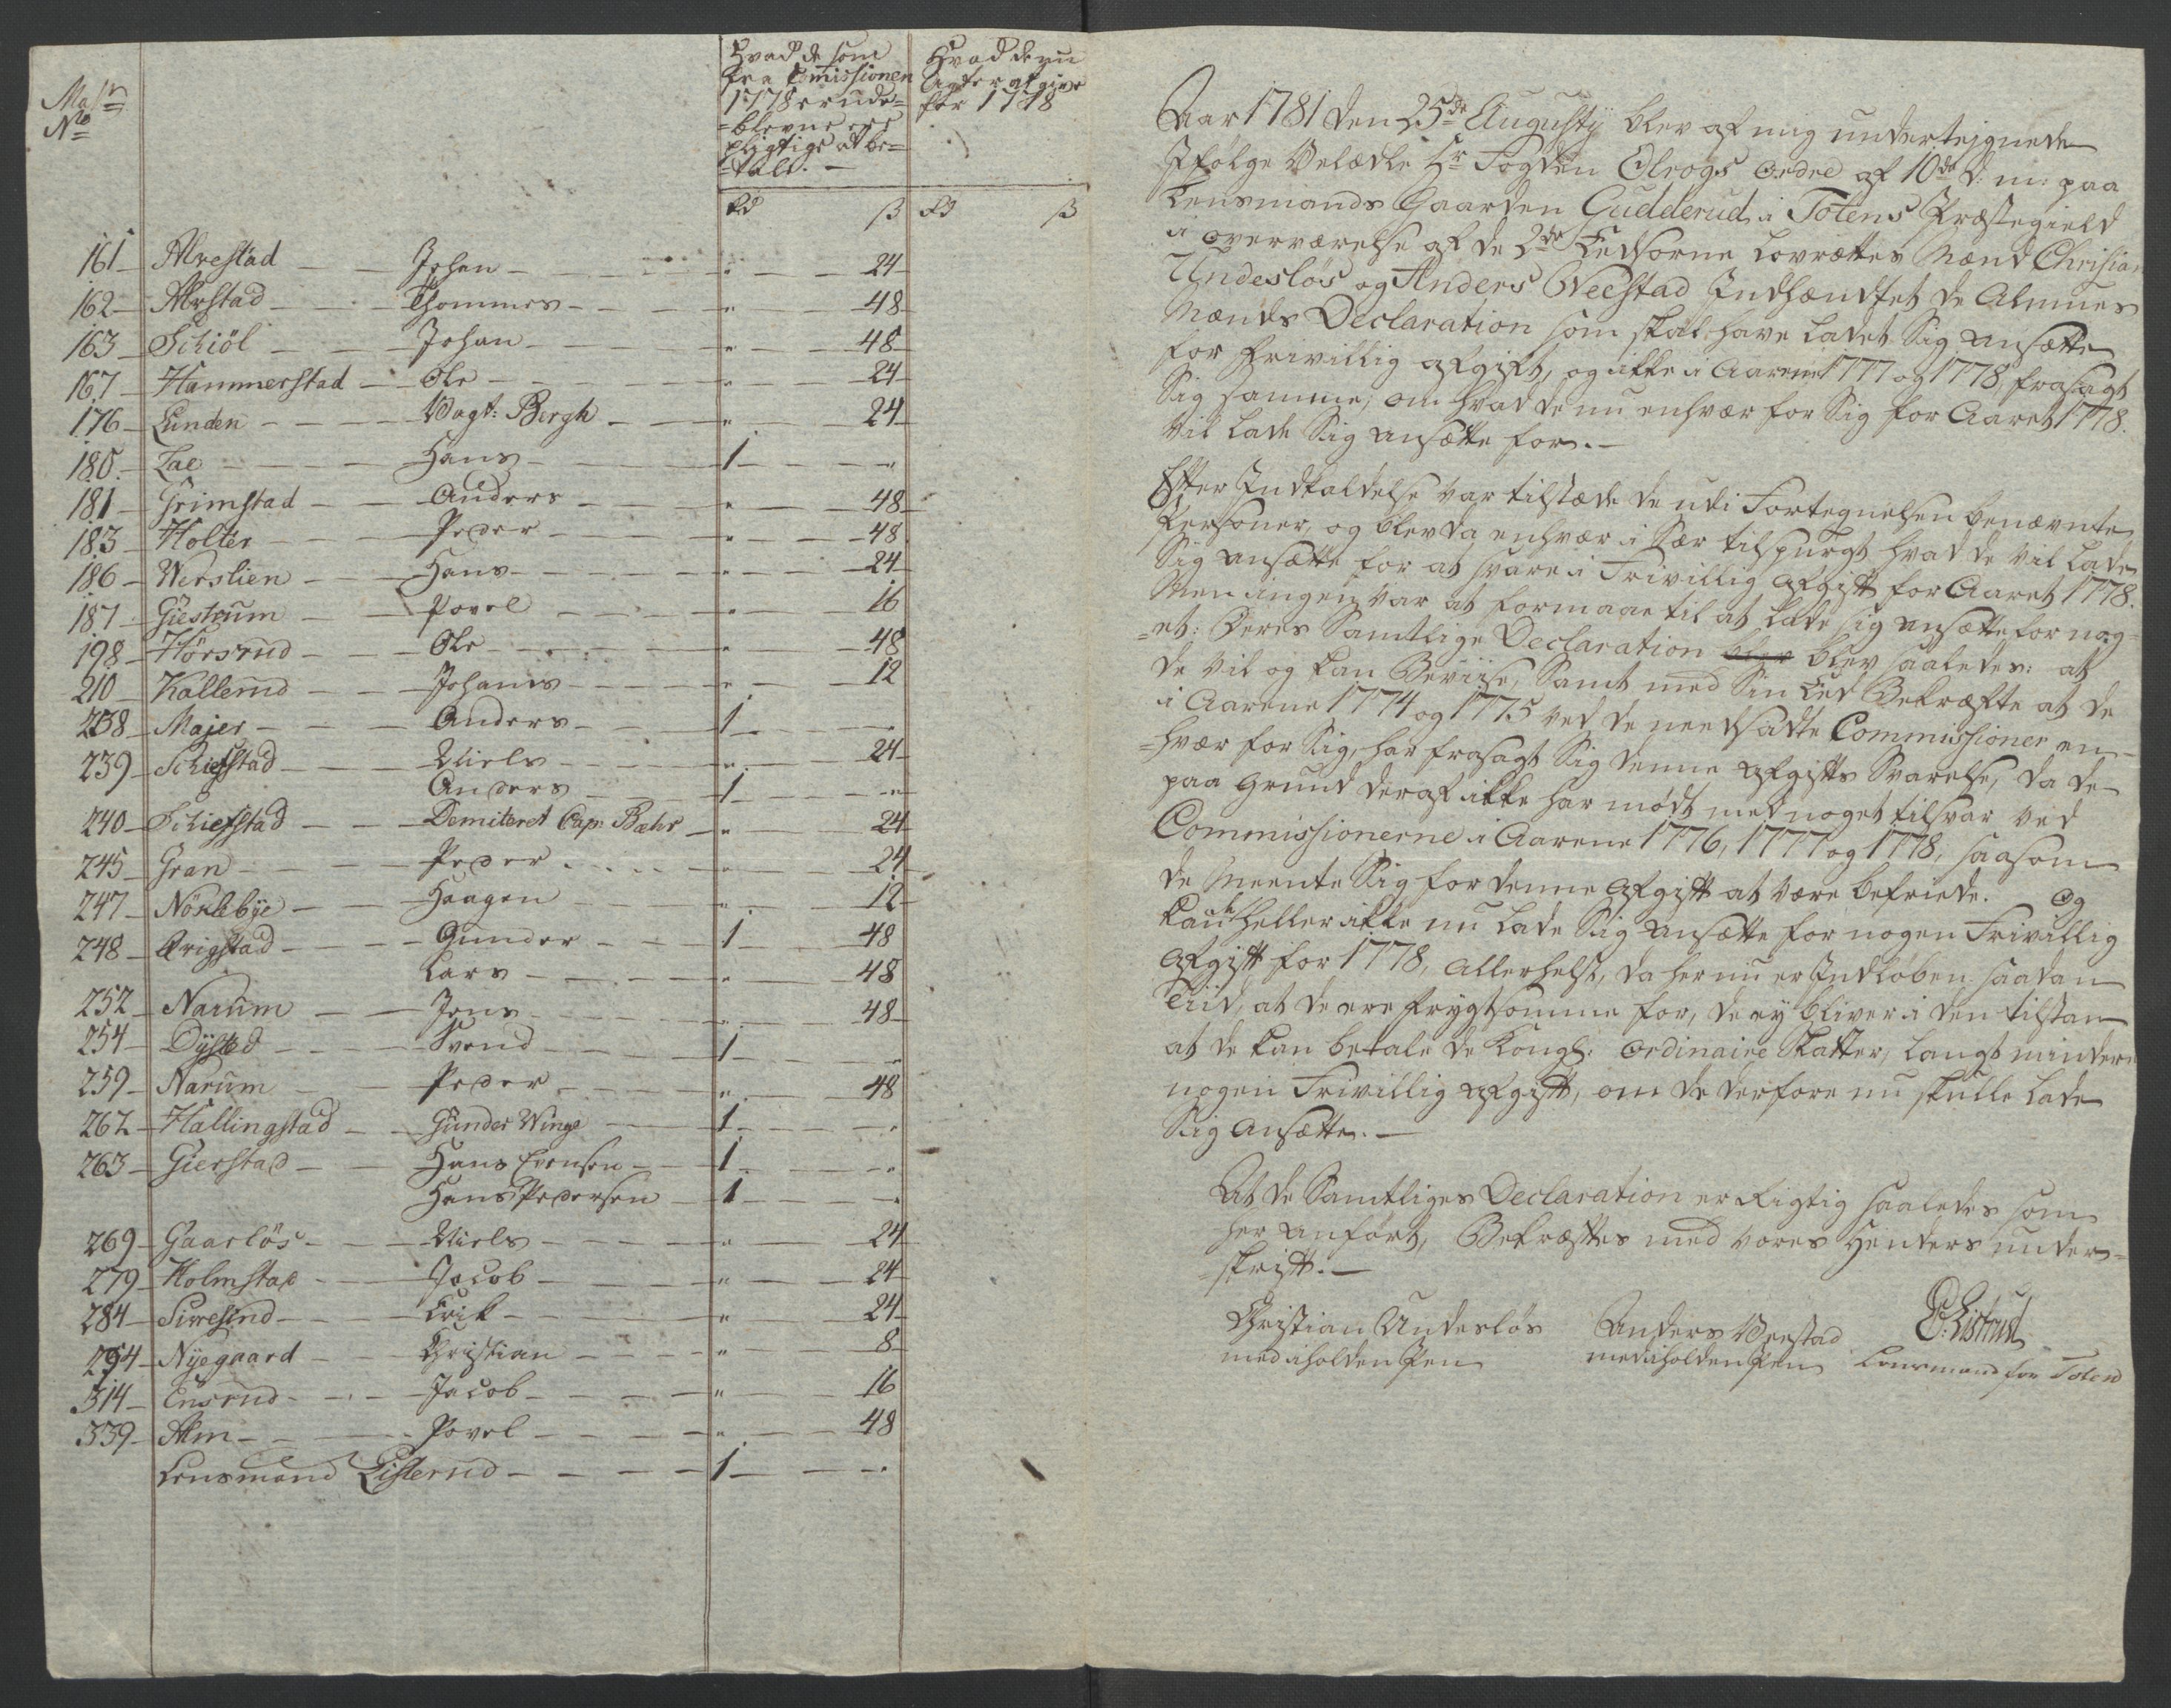 Mat:r
No
Hvad de som
fra Comissionen
1778 er ude=
=blevne ere
pligtige at be=
=tale. —
Hvad de nu
Agter at give
for 1778
Rd ß Rd ß
161 — Alvestad — Johan — " — 24
162 — Alvstad — Thommes — " — 48
163 — Schiöl — Johan — " — 48
167 — Hammerstad — Ole — " — 24
176 — Lunden — Vagt: Bergh — " — 24
180 — Lae — Hans — 1 — "
181 — Grimstad — Anders — " — 48
183 — Holter — Peder — " — 48
186 — Werslien — Hans — " — 24
187 — Giestrum — Povel — " — 16
198 — Hörsrud — Ole — " — 48
210 — Kallerud — Johanes — " — 12
238 — Majer — Anders — 1 — "
239 — Schiefstad — Niels — " — 24
Anders — 1 — "
240 — Schiefstad — Demiteret Cap: Bæhr — " — 24
245 — Gran — Peder — " — 24
247 — Nöklebÿe — Haagen — " — 12
248 — Qrigstad — Gunder — 1 — 48
Lars — " — 48
252 — Narum — Jens — " — 48
254 — Dÿsted — Svend — 1 — "
259 — Narum — Peder — " — 48
262 — Hallingstad — Gunder Winge — 1 — "
263 — Gierstad — Hans Evensen — 1 — "
Hans Pedersen — 1 — "
269 — Gaarlös — Niels — " — 24
279 — Holmstad — Jacob — " — 24
284 — Sivesind — Erik — " — 24
294 — Nÿegaard — Christian — " — 8
314 — Ensrud — Jacob — " — 16
339 — Alm — Povel — " — 48
Lensmand Listerud — 1 — "
Aar 1781 den 25de Augusty blev af mig undertejgnede
Ifölge Velædle Hr Fogden Elrogs Ordre af 10de d: m: paa
Lensmands Gaarden Gudderud i Totens Præstegield
i overværelse af de 2de Eedsorne Lovrettes Mænd Christian
Undeslös og Anders Veestad Indhændtet de Almues
Mænds Declaration som skal have ladet Sig ansætte
for frivillig afgift, og ikke i Aarene 1777 og 1778 frasagt
Sig samme, om hvad de nu enhvær for Sig for Aaret 1778.
vil lade Sig ansætte for. —
Efter Indkaldelse var tilstæde de udi Fortegnelsen benævnte
Personer, og blev da enhvær i Sær tilspurgt hvad de vil lade
Sig ansætte for at svare i Frivillig Afgift for Aaret 1778.
Men ingen var at formaae til at lade sig ansætte for nog=
=et: Deres Samtlige Declaration blev blev saaledes: at
de vil og kan Beviise, Samt med Sin Eed Bekræfte at de
i Aarene 1774 og 1775 ved de needsatte Commissioner en=
=hvær for Sig, har frasagt Sig denne afgifts Svarelse, da de
paa Grund deraf ikke har mödt med noget tilsvar ved
Commissionerne i Aarene 1776, 1777 og 1778, saasom
de Meente Sig for denne Afgift at være befriede. Og
kan de heller ikke nu lade Sig ansætte for nogen Frivillig
Afgift for 1778, Allerhelst, da her nu er Indlöben saadan
Tiid, at de ere frygtsomme for, de ey bliver i den tilstan
at de kan betale de Kongl: Ordinaire Skatter, langt mindere
nogen Frivillig afgift, om de derfore nu skulle lade
Sig Ansætte. —
At de Samtliges Declaration er Rigtig saaledes som
her anfört, Bekræftes med vores Hænders under=
=skrift. —
Christian Undeslös Anders Veestad P: Listerud
med iholden Pen med iholden Pen Lensmand for Toten